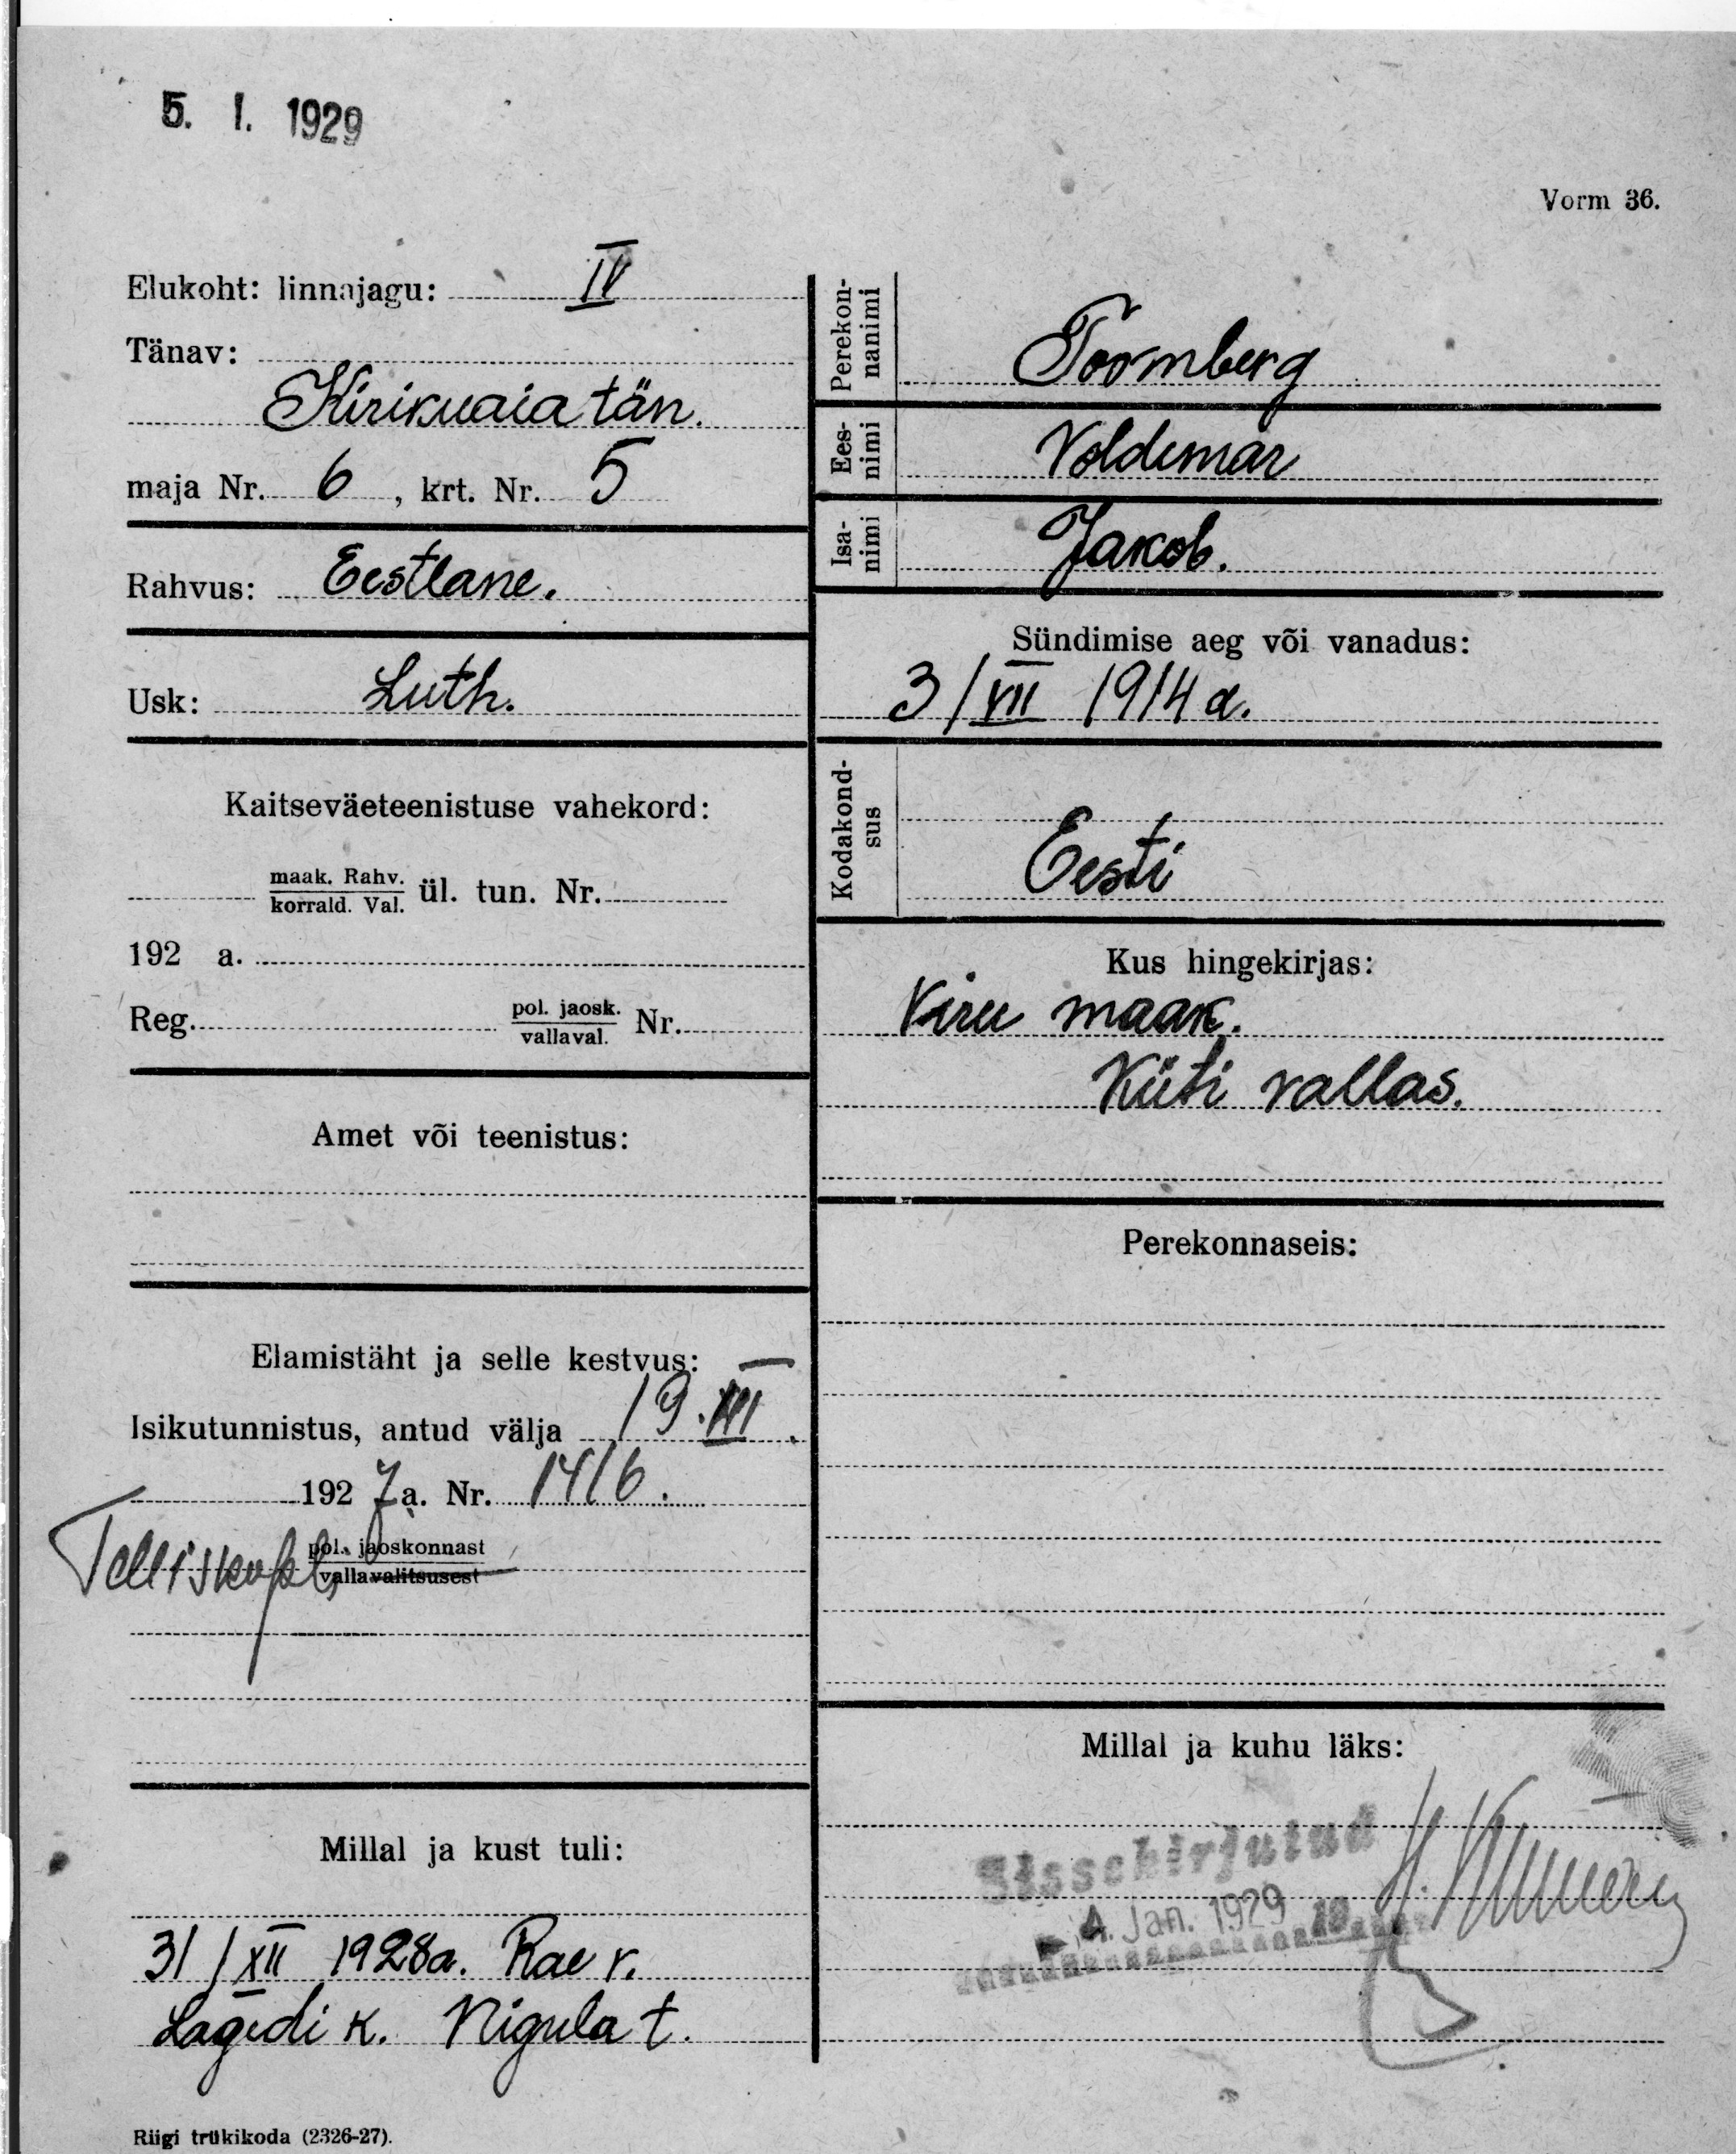 5. I. 1929
Vorm 36.
Elukoht: linnajagu: IV
Tänav:
Kirikuaia tän.
maja Nr. 6, krt. Nr. 5
Rahvus: Eestlane.
Usk: Luth.
Kaitseväeteenistuse vahekord:
maak. Rahv.
korrald. Val. ül. tun. Nr.
192 a.
Reg. pol. jaosk.
vallaval. Nr.
Amet või teenistus:
Elamistäht ja selle kestvus: —
Isikutunnistus, antud välja 19. III.
192 7 a. Nr. 1416.
pol. jaoskonnast
vallavalitsusest
Millal ja kust tuli:
31/XII 1928 a. Rae v.
Lagedi k. Nigula t.
Riigi trükikoda (2326-27).
Perekon-
nanimi
Toomberg
Ees-
nimi
Voldemar
Isa-
nimi
Jakob.
Sündimise aeg või vanadus:
3/VII 1914 a.
Kodakond-
sus
Eesti
Kus hingekirjas:
Viru maak.
Küti vallas.
Perekonnaseis:
Millal ja kuhu läks:
Sissekirjutud
4. Jan. 1929 19